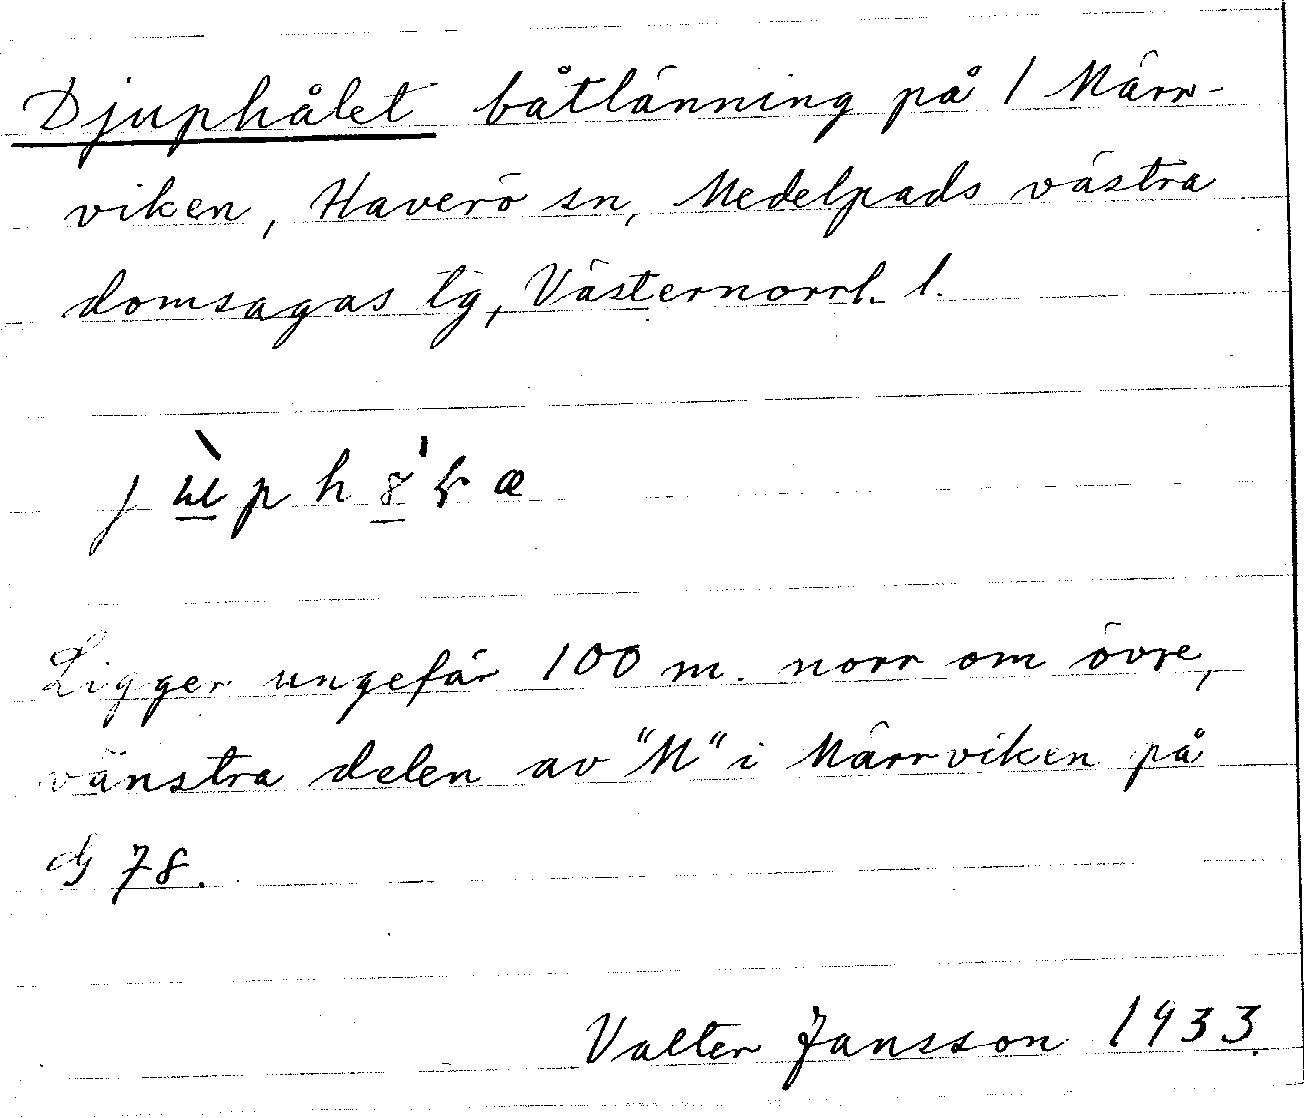 Djuphålet båtlänning på 1 Märr-
viken, Haverö sn, Medelpads västra
domsagas tg, Västernorrl. l.
Ligger ungefär 100 m. norr om övre,
vänstra delen av "M" i Märrviken på
G 78.
Valter Jansson 1933.